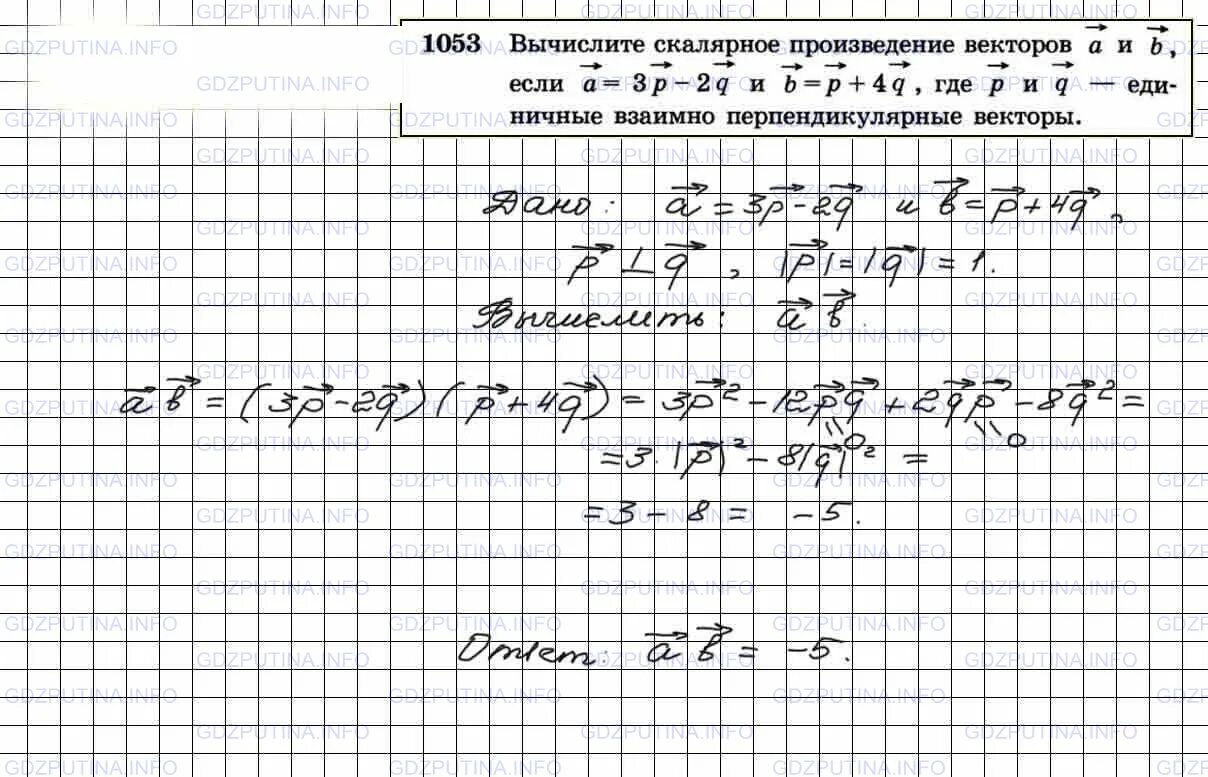 GDZPUTINA.INFO
1053 Вычислите скалярное произведение векторов a⃗ и b⃗,
если a⃗ = 3p⃗ − 2q⃗ и b⃗ = p⃗ + 4q⃗, где p⃗ и q⃗ — еди-
ничные взаимно перпендикулярные векторы.
Дано: a⃗ = 3p⃗ − 2q⃗ и b⃗ = p⃗ + 4q⃗,
p⃗ ⊥ q⃗, |p⃗| = |q⃗| = 1.
Вычислить: a⃗ b⃗.
a⃗ b⃗ = (3p⃗ − 2q⃗)(p⃗ + 4q⃗) = 3p⃗² − 12p⃗q⃗ + 2q⃗p⃗ − 8q⃗² =
\\ 0 \\ 0
= 3·|p⃗|² − 8|q⃗|² =
= 3 − 8 = −5.
Ответ: a⃗ b⃗ = −5.